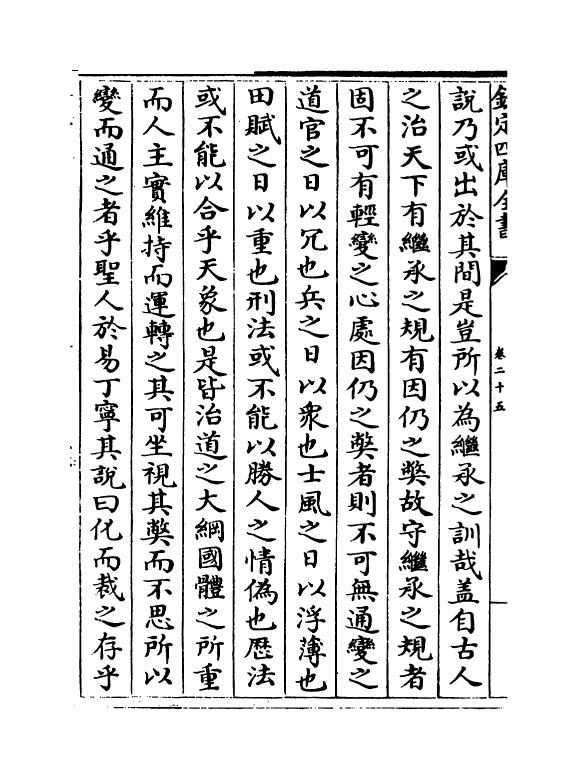 欽定四庫全書
卷二十五
說乃或出於其間是豈所以為繼承之訓哉盖自古人
之治天下有繼承之規有因仍之獘故守繼承之規者
固不可有輕變之心處因仍之獘者則不可無通變之
道官之日以冗也兵之日以衆也士風之日以浮薄也
田賦之日以重也刑法或不能以勝人之情偽也厯法
或不能以合乎天象也是皆治道之大綱國體之所重
而人主實維持而運轉之其可坐視其獘而不思所以
變而通之者乎聖人於易丁寧其說曰化而裁之存乎